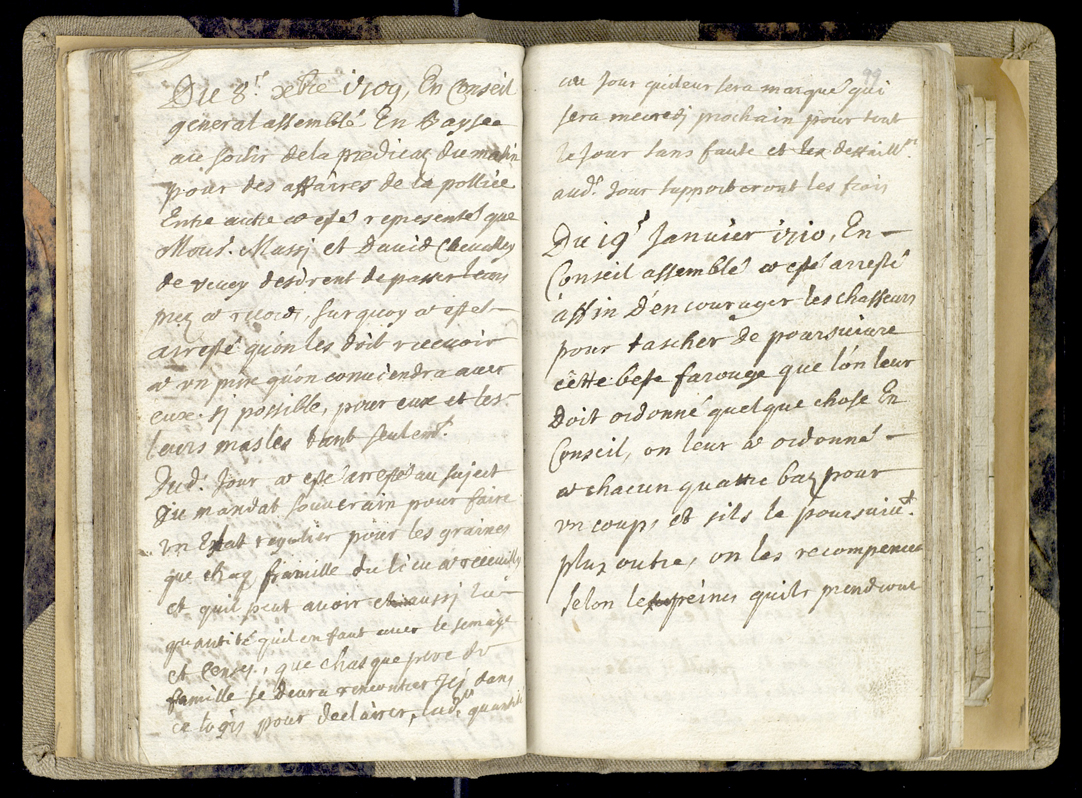 Du 8.e xbre 1709, En Conseil
general assemblé En Baysee
au sortir de la predicaõn du matin
pour des affaires de la pollice
Entre autre at esté representé que
Mous.r Massi et David Chevalley
de vevey desirent de passer leurs
prez a record, surquoy at esté
arresté quon les doit recevoir
a un prix quon conviendra avec
eux si possible, pour eux et les
leurs masles tant seulem.t
Dud.t Jour at esté arresté au sujet
du mandat souverain pour faire
un Estat regulier pour les graines
que chaq famille du lieu at recueilly
et quil peut avoir et aussi la
quantité quil en faut avec le semage
et Censes, que chasque pere de
famille se devra rencontrer Icy dans
ce logis pour declairer, lad.te quantité
99
au Jour quileur sera marqué qui
sera mecredj prochain pour tout
le Jour sans faute et les deffaill.ts
aud.t Jour supporteront les frais
Du 19.e Janvier 1710, En
Conseil assemblé at esté arresté
affin D'encourager les chasseurs
pour tascher de poursuivre
cette beste farouge que l'on leur
Doit ordonné quelque chose En
Conseil, on leur at ordonné
a chacun quattre batz pour
un coups et sils la poursuiv.t
plus outre, on les recompencera
selon les peines quils prendront